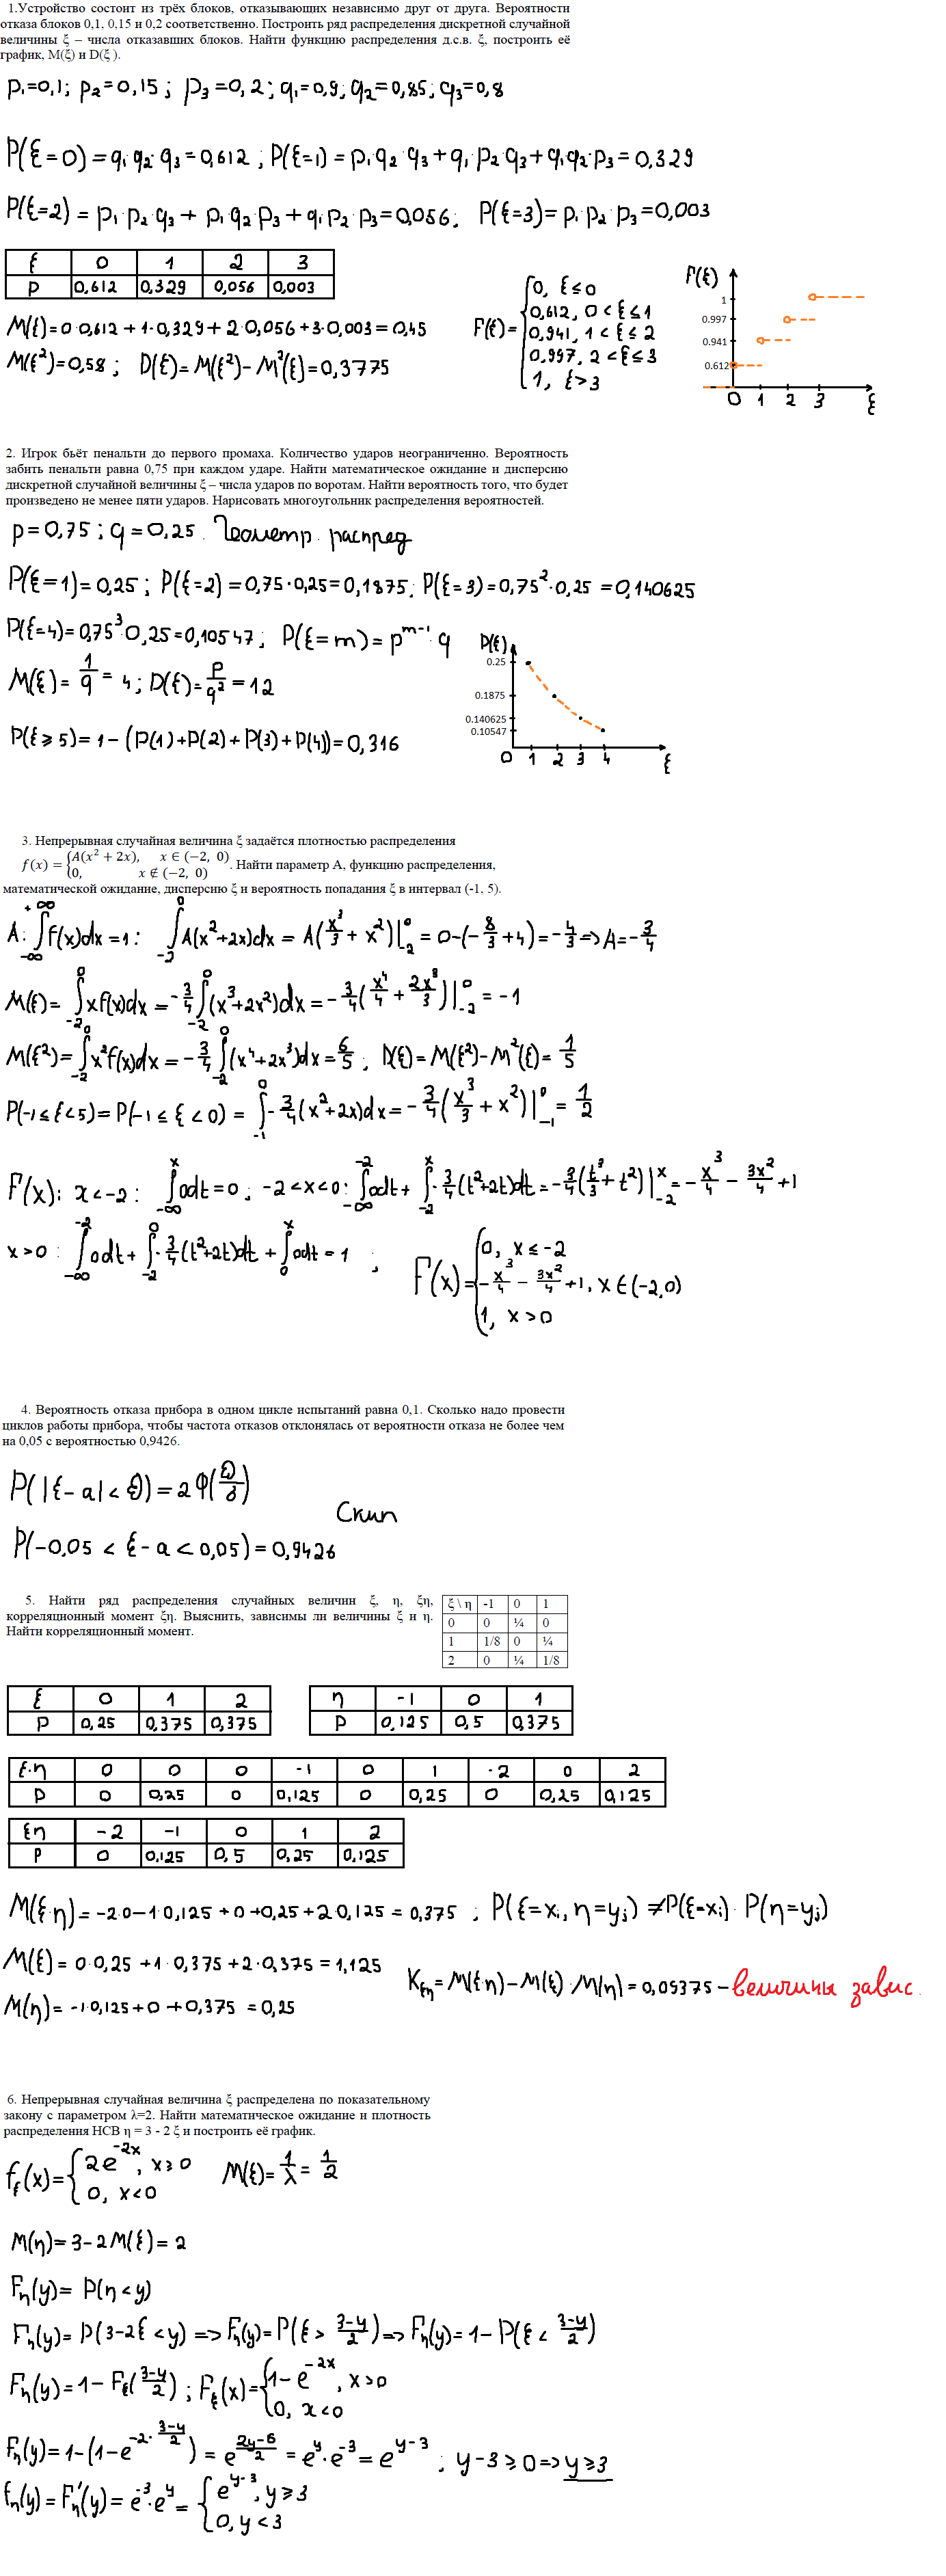 1.Устройство состоит из трёх блоков, отказывающих независимо друг от друга. Вероятности
отказа блоков 0,1, 0,15 и 0,2 соответственно. Построить ряд распределения дискретной случайной
величины ξ – числа отказавших блоков. Найти функцию распределения д.с.в. ξ, построить её
график, M(ξ) и D(ξ ).
p₁=0,1; p₂=0,15; p₃=0,2; q₁=0,9; q₂=0,85; q₃=0,8
P(ξ=0)=q₁·q₂·q₃=0,612; P(ξ=1)=p₁·q₂·q₃+q₁·p₂·q₃+q₁·q₂·p₃=0,329
P(ξ=2)=p₁·p₂·q₃+p₁·q₂·p₃+q₁·p₂·p₃=0,056; P(ξ=3)=p₁·p₂·p₃=0,003
ξ 0 1 2 3
p 0,612 0,329 0,056 0,003
M(ξ)=0·0,612+1·0,329+2·0,056+3·0,003=0,45
M(ξ²)=0,58; D(ξ)=M(ξ²)-M²(ξ)=0,3775
F(ξ)={0, ξ≤0
0,612, 0<ξ≤1
0,941, 1<ξ≤2
0,997, 2<ξ≤3
1, ξ>3
F(ξ)
1
0.997
0.941
0.612
0 1 2 3 ξ
2. Игрок бьёт пенальти до первого промаха. Количество ударов неограниченно. Вероятность
забить пенальти равна 0,75 при каждом ударе. Найти математическое ожидание и дисперсию
дискретной случайной величины ξ – числа ударов по воротам. Найти вероятность того, что будет
произведено не менее пяти ударов. Нарисовать многоугольник распределения вероятностей.
p=0,75; q=0,25. Геометр. распред
P(ξ=1)=0,25; P(ξ=2)=0,75·0,25=0,1875; P(ξ=3)=0,75²·0,25=0,140625
P(ξ=4)=0,75³·0,25=0,10547; P(ξ=m)=p^(m-1)·q
M(ξ)=1/q=4; D(ξ)=p/q²=12
P(ξ≥5)=1-(P(1)+P(2)+P(3)+P(4))=0,316
P(ξ)
0.25
0.1875
0.140625
0.10547
0 1 2 3 4 ξ
3. Непрерывная случайная величина ξ задаётся плотностью распределения
f(x) = {A(x² + 2x), x ∈ (−2, 0)
0, x ∉ (−2, 0) . Найти параметр А, функцию распределения,
математической ожидание, дисперсию ξ и вероятность попадания ξ в интервал (-1, 5).
A: ∫_{-∞}^{+∞} f(x)dx=1: ∫_{-2}^{0} A(x²+2x)dx = A(x³/3+x²)|_{-2}^{0} = 0-(-8/3+4)=-4/3 => A=-3/4
M(ξ)=∫_{-2}^{0} xf(x)dx=-3/4∫_{-2}^{0}(x³+2x²)dx=-3/4(x⁴/4+2x³/3)|_{-2}^{0}=-1
M(ξ²)=∫_{-2}^{0} x²f(x)dx=-3/4∫_{-2}^{0}(x⁴+2x³)dx=6/5; D(ξ)=M(ξ²)-M²(ξ)=1/5
P(-1≤ξ<5)=P(-1≤ξ<0)=∫_{-1}^{0}-3/4(x²+2x)dx=-3/4(x³/3+x²)|_{-1}^{0}=1/2
F(x): x<-2: ∫_{-∞}^{x}0dt=0; -2<x<0: ∫_{-∞}^{-2}0dt+∫_{-2}^{x}-3/4(t²+2t)dt=-3/4(t³/3+t²)|_{-2}^{x}=-x³/4-3x²/4+1
x>0: ∫_{-∞}^{-2}0dt+∫_{-2}^{0}-3/4(t²+2t)dt+∫_{0}^{x}0dt=1;
F(x)={0, x≤-2
-x³/4-3x²/4+1, x∈(-2,0)
1, x>0
4. Вероятность отказа прибора в одном цикле испытаний равна 0,1. Сколько надо провести
циклов работы прибора, чтобы частота отказов отклонялась от вероятности отказа не более чем
на 0,05 с вероятностью 0,9426.
Скип
P(-0,05<ξ-a<0,05)=0,9426
5. Найти ряд распределения случайных величин ξ, η, ξη,
корреляционный момент ξη. Выяснить, зависимы ли величины ξ и η.
Найти корреляционный момент.
ξ \ η -1 0 1
0 0 ¼ 0
1 1/8 0 ¼
2 0 ¼ 1/8
ξ 0 1 2
p 0,25 0,375 0,375
η -1 0 1
p 0,125 0,5 0,375
ξ·η 0 0 0 -1 0 1 -2 0 2
p 0 0,25 0 0,125 0 0,25 0 0,25 0,125
ξη -2 -1 0 1 2
p 0 0,125 0,5 0,25 0,125
M(ξ·η)=-2·0-1·0,125+0+0,25+2·0,125=0,375; P(ξ=xᵢ, η=yⱼ)≠P(ξ=xᵢ)·P(η=yⱼ)
M(ξ)=0·0,25+1·0,375+2·0,375=1,125
K_ξη=M(ξ·η)-M(ξ)·M(η)=0,09375-величины завис.
M(η)=-1·0,125+0+0,375=0,25
6. Непрерывная случайная величина ξ распределена по показательному
закону с параметром λ=2. Найти математическое ожидание и плотность
распределения НСВ η = 3 - 2 ξ и построить её график.
f_ξ(x)={2e^(-2x), x≥0
0, x<0
M(ξ)=1/λ=1/2
M(η)=3-2M(ξ)=2
F_η(y)=P(η<y)
F_η(y)=P(3-2ξ<y)=>F_η(y)=P(ξ>(3-y)/2)=>F_η(y)=1-P(ξ<(3-y)/2)
F_η(y)=1-F_ξ((3-y)/2); F_ξ(x)={1-e^(-2x), x>0
0, x<0
F_η(y)=1-(1-e^(-2·(3-y)/2))=e^((2y-6)/2)=e^y·e^(-3)=e^(y-3); y-3≥0=>y≥3
f_η(y)=F'_η(y)=e^(-3)·e^y={e^(y-3), y≥3
0, y<3